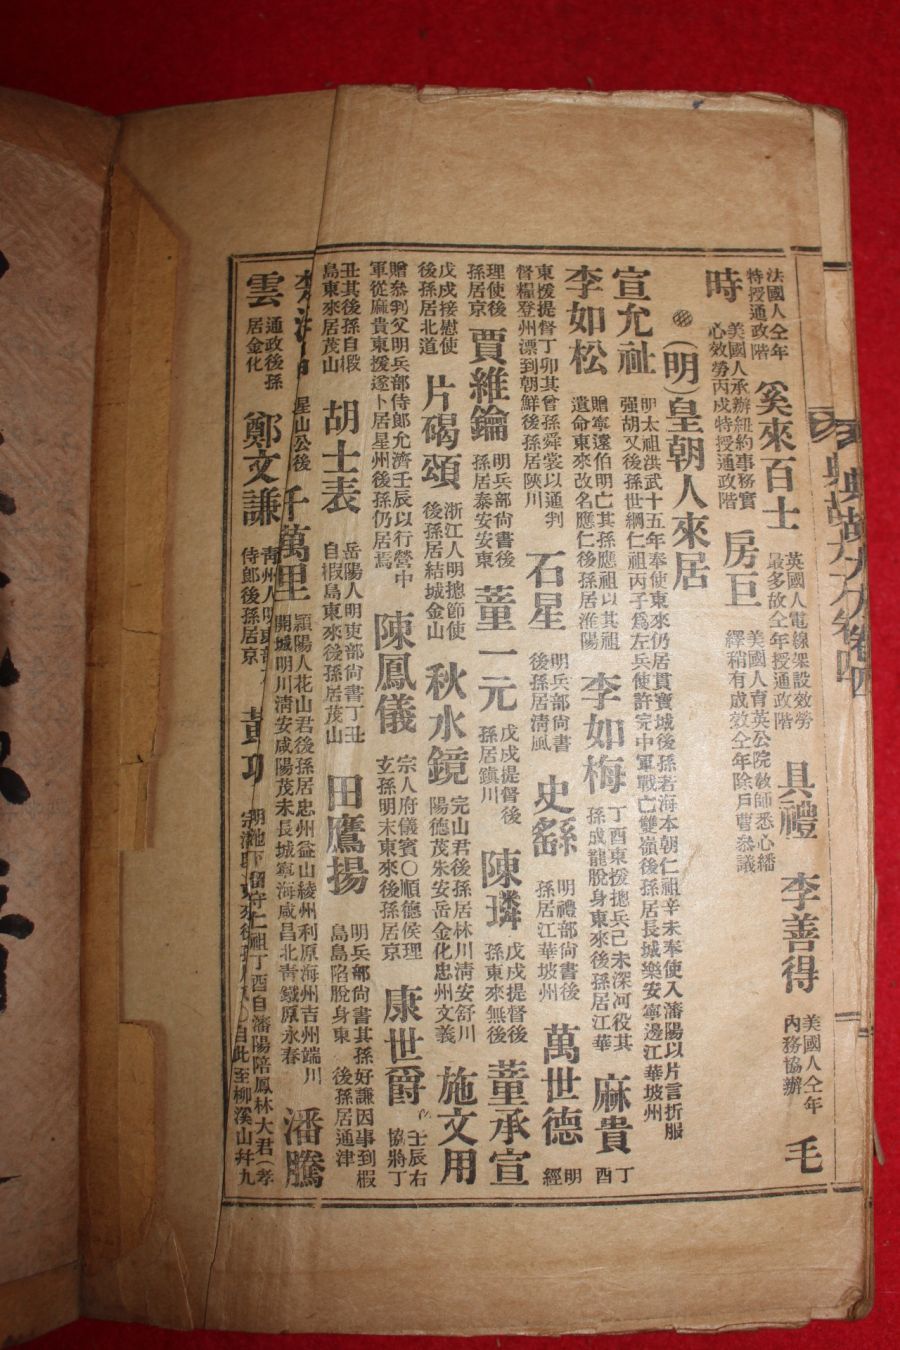 法國人仝年
特授通政階 奚來百士 英國人電線架設效勞
最多故仝年授通政階 具禮 李善得 美國人仝年
內務協辦 毛
時 美國人承辦紐約事務實
心效勞丙戌特授通政階 房巨 美國人育英公院敎師悉心繙
繹稍有成效仝年除戶曹叅議
(明)皇朝人來居
宣允祉 明太祖洪武十五年奉使東來仍居貫寶城後孫若海本朝仁祖辛未奉使入瀋陽以片言折服
强胡又後孫世綱仁祖丙子爲左兵使許完中軍戰亡雙嶺後孫居長城樂安寧邊江華坡州
李如松 贈寧遠伯明亡其孫應祖以其祖
遺命東來改名應仁後孫居淮陽 李如梅 丁酉東援摠兵己未深河役其
孫成龍脫身東來後孫居江華 麻貴 丁
酉
東援提督丁卯其曾孫舜裳以通判
督糧登州漂到朝鮮後孫居陜川 石星 明兵部尙書
後孫居淸風 史繇 明禮部尙書後
孫居江華坡州 萬世德 明
經
理使後
孫居京 賈維鑰 明兵部尙書後
孫居泰安安東 董一元 戊戌提督後
孫居鎭川 陳璘 戊戌提督後
孫東來無後 董承宣
戊戌接慰使
後孫居北道 片碣頌 浙江人明摠節使
後孫居結城金山 秋水鏡 完山君後孫居林川淸安舒川
陽德茂朱安岳金化忠州文義 施文用
贈叅判父明兵部侍郎允濟壬辰以行營中
軍從麻貴東援遂卜居星州後孫仍居焉 陳鳳儀 宗人府儀賓〇順德侯理
玄孫明末東來後孫居京 康世爵 壬辰右
協將丁
丑其後孫自椵
島東來居茂山 胡士表 岳陽人明吏部尙書丁丑
自椵島東來後孫居茂山 田鷹揚 明兵部尙書其孫好謙因事到椵
島島陷脫身東 後孫居通津
星山公後 千萬里 頴陽人花山君後孫居忠州益山綾州利原海州吉州端川
開城明川淸安咸陽茂朱長城寧海咸昌北靑鐵原永春 潘騰
雲 通政後孫
居金化 鄭文謙 靑州人明
侍郎後孫居京 黃功 仁祖丁酉自瀋陽陪鳳林大君(孝
〇自此至柳溪山幷九